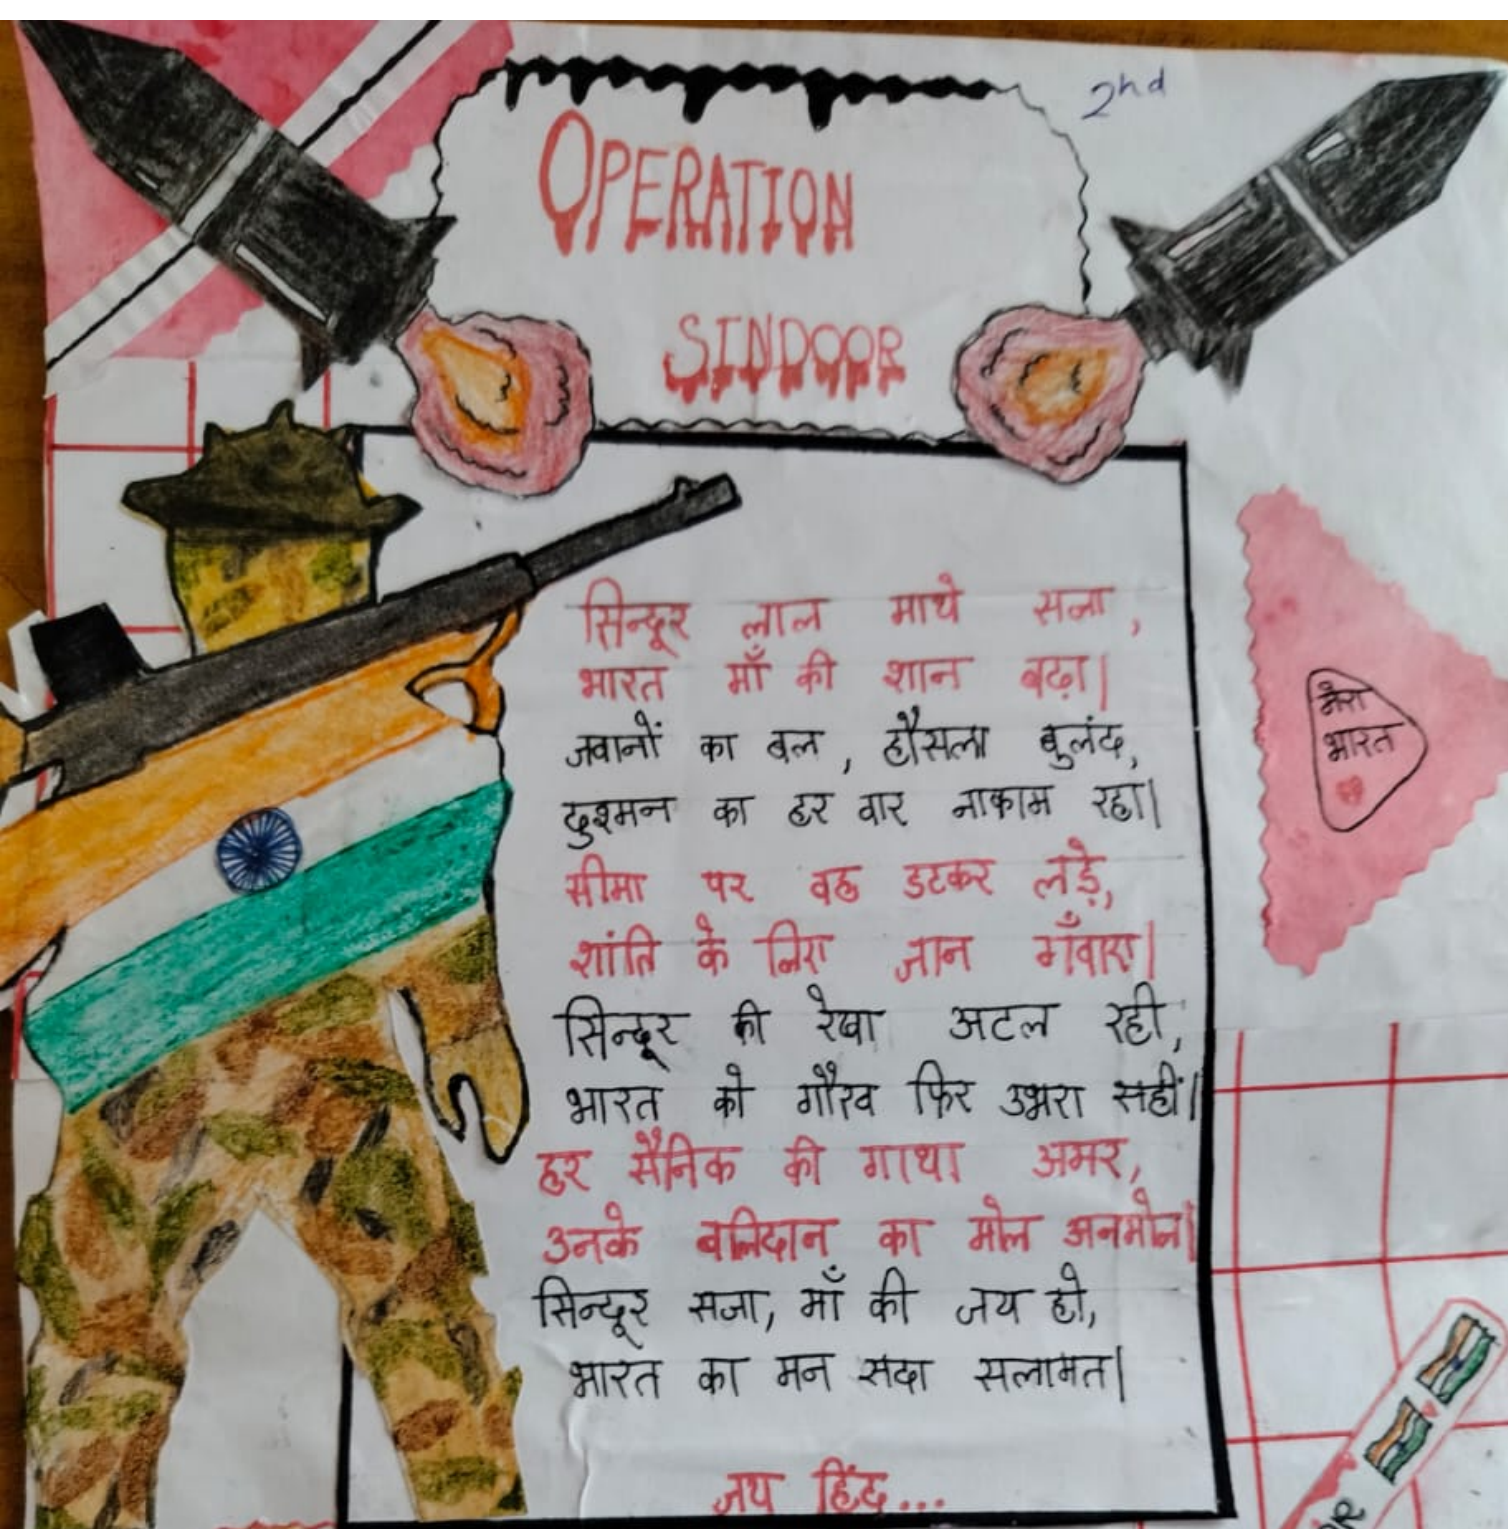 2nd
OPERATION
SINDOOR
सिन्दूर लाल माथे सजा,
भारत माँ की शान बढ़ा।
जवानों का बल, हौसला बुलंद,
दुश्मन का हर वार नाकाम रहा।
सीमा पर वह डटकर लड़े,
शांति के लिए जान गँवाए।
सिन्दूर की रेखा अटल रही,
भारत को गौरव फिर उभरा सही।
हर सैनिक की गाथा अमर,
उनके बलिदान का मोल अनमोल।
सिन्दूर सजा, माँ की जय हो,
भारत का मन सदा सलामत।
जय हिंद...
मेरा
भारत